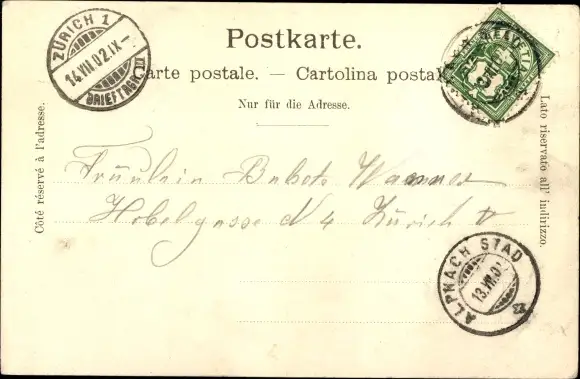 Postkarte.
Carte postale. — Cartolina postale
Nur für die Adresse.
Côté réservé à l'adresse.
Lato riservato all' indirizzo.
ZÜRICH 1
14.VII.02.IX–
BRIEFTRÄGER III
HELVETIA
5
Fräulein Babete Wanner
Hobelgasse N 4 Zürich V
ALPNACH STAD
13.VII.02